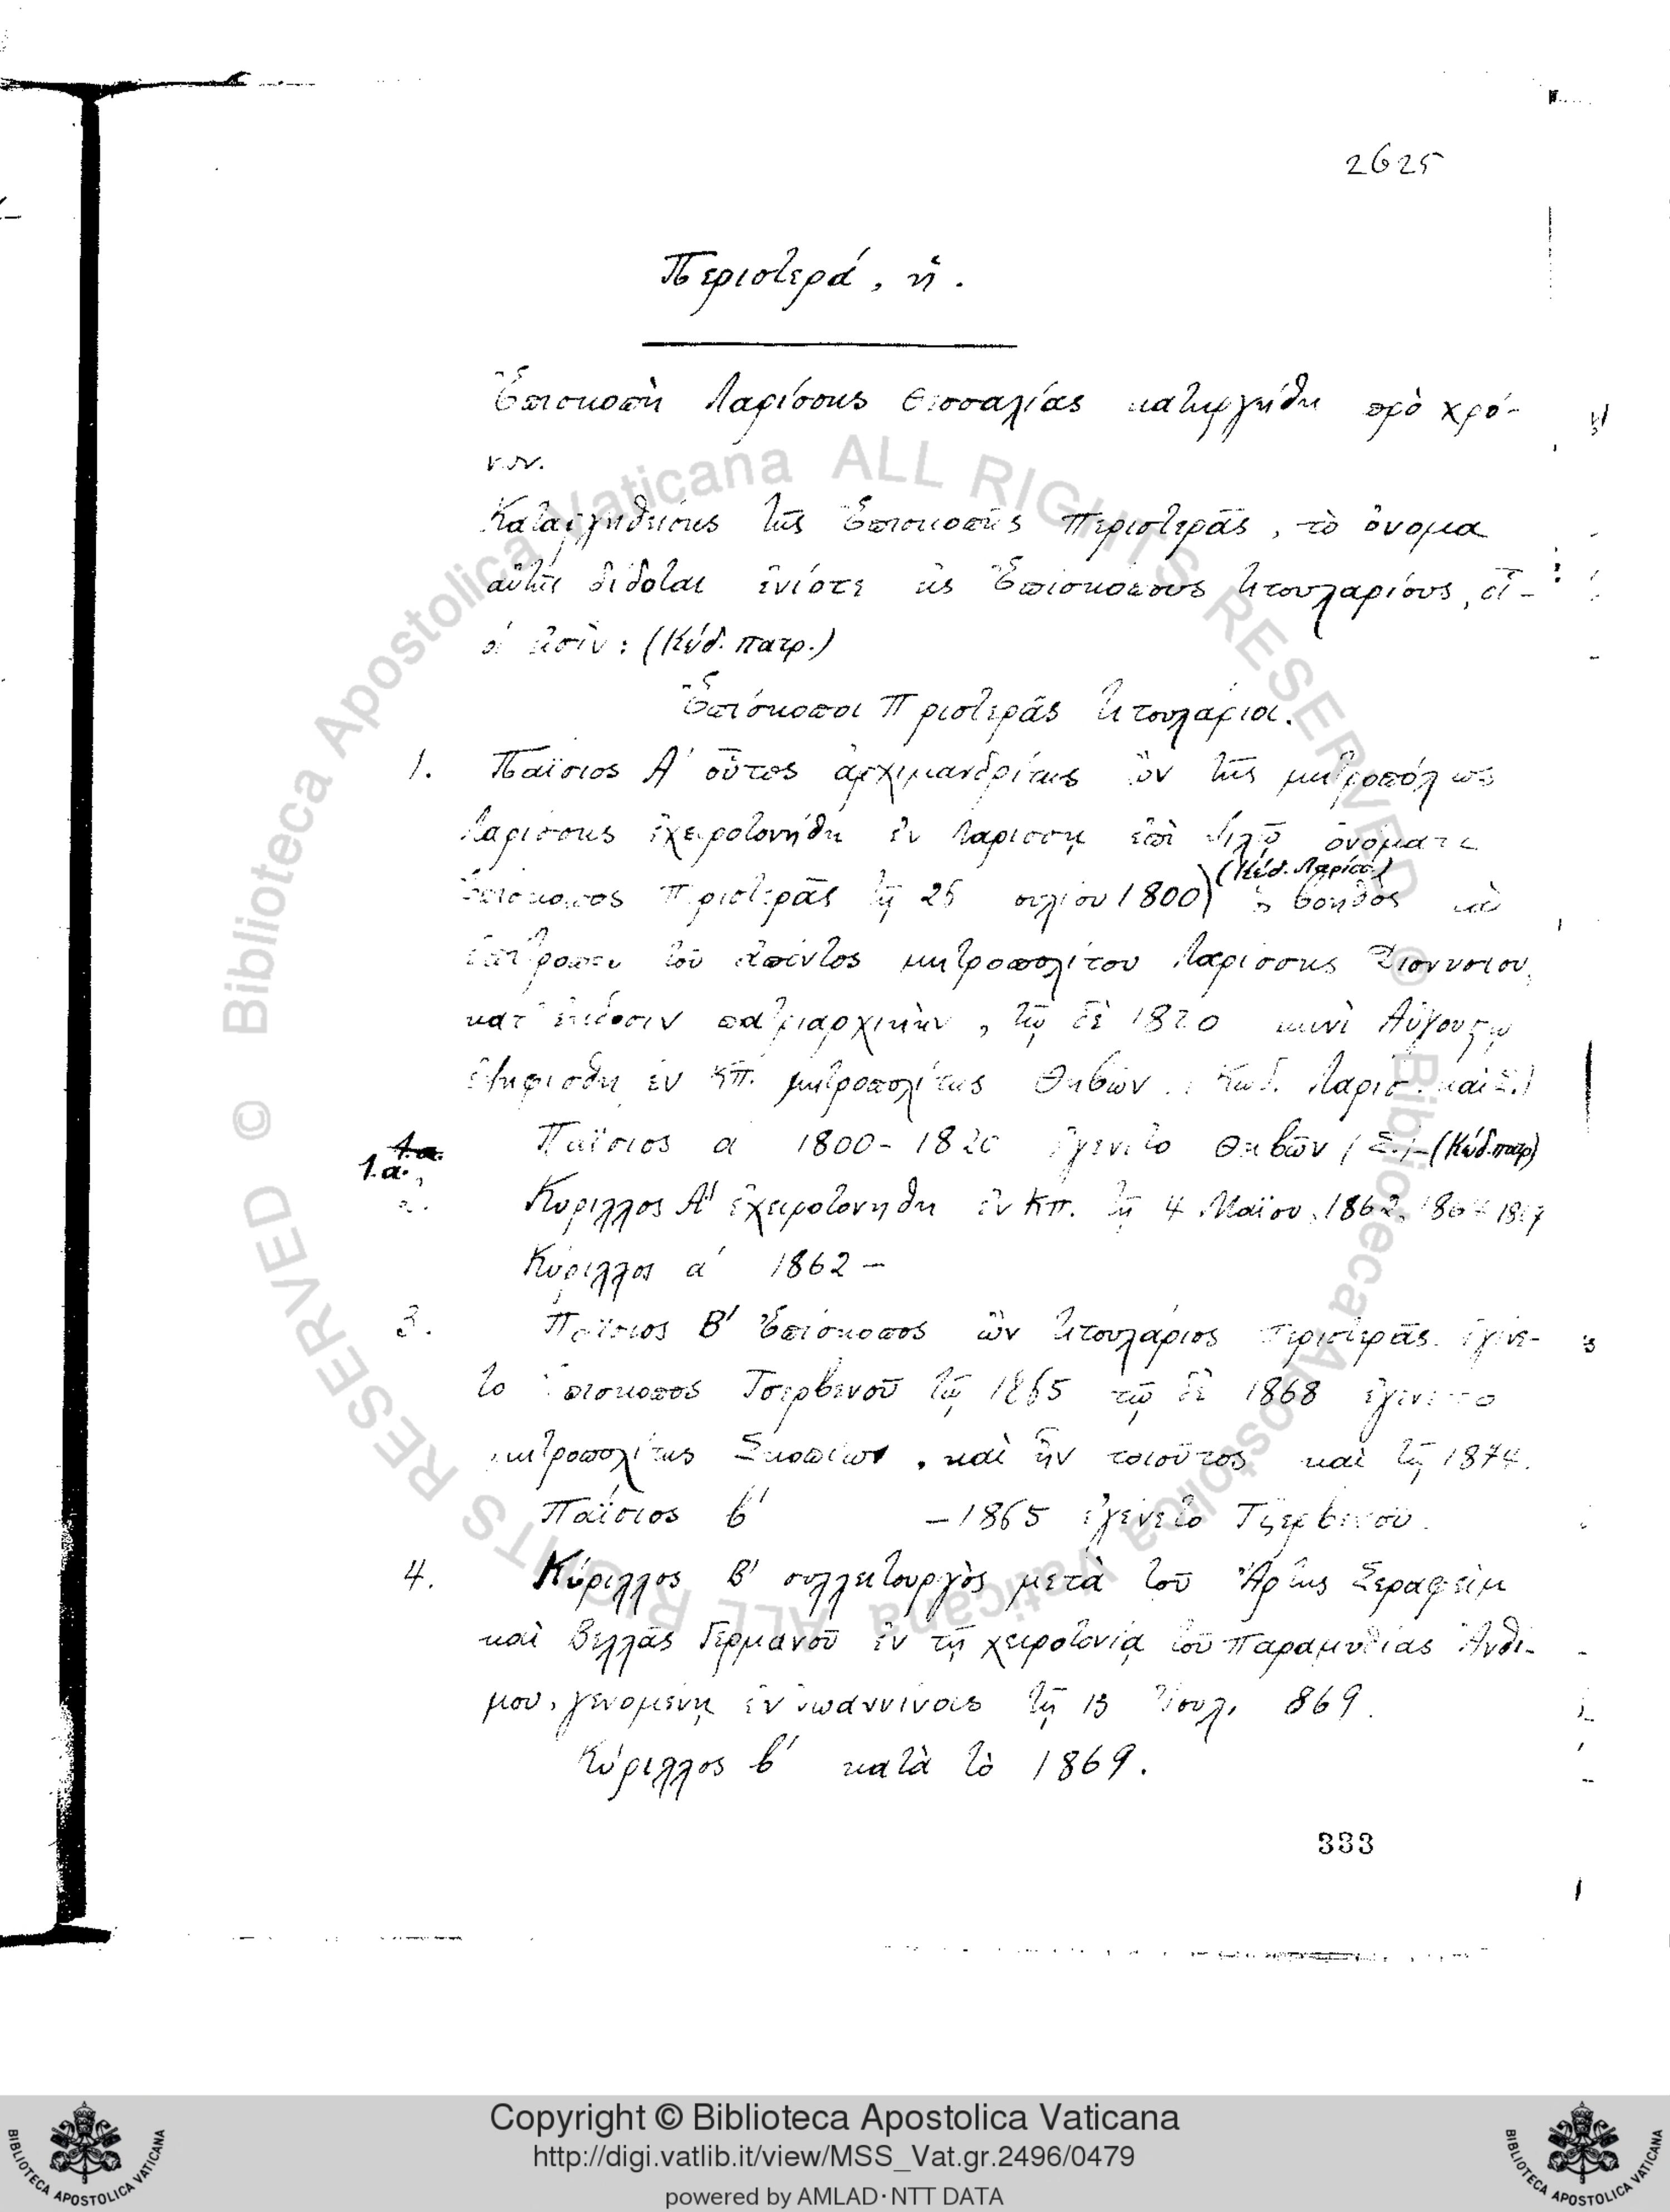 2625
Περιστερά, ἡ.
Ἐπισκοπὴ Λαρίσσης Θεσσαλίας κατηργήθη πρὸ χρό-
νων.
Καταργηθείσης τῆς Ἐπισκοπῆς Περιστερᾶς, τὸ ὄνομα
αὐτῆς δίδοται ἐνίοτε εἰς Ἐπισκόπους τιτουλαρίους, οἵ-
οἱ εἰσὶν: (Κώδ. πατρ.)
Ἐπίσκοποι Περιστερᾶς τιτουλάριοι.
1. Παΐσιος Α' οὗτος ἀρχιμανδρίτης ὢν τῆς μητροπόλεως
Λαρίσσης ἐχειροτονήθη ἐν Λαρίσσῃ ἐπὶ ψιλῷ ὀνόματι
(Κώδ. Λαρίσσ.)
Ἐπίσκοπος Περιστερᾶς τῇ 25 Ἰουλίου 1800) ὡς βοηθὸς καὶ
τοῦ ἀπόντος μητροπολίτου Λαρίσσης Διονυσίου,
κατ' ἔκδοσιν πατριαρχικὴν, τῷ δὲ 1820 μηνὶ Αὐγούστῳ
ἐψηφίσθη ἐν Κπ. μητροπολίτης Θηβῶν. (Κώδ. Λαρισ. καὶ Σ.)
1.α. Παΐσιος α' 1800-1820 ἐγένετο Θηβῶν (Σ.)-(Κώδ. πατρ)
2. Κύριλλος Α' ἐχειροτονήθη ἐν Κπ. τῇ 4 Μαΐου 1862,
Κύριλλος α' 1862 -
3. Παΐσιος Β' Ἐπίσκοπος ὢν τιτουλάριος Περιστερᾶς. ἐγένε-
το Ἐπίσκοπος Τσερβενοῦ τῷ 1865 τῷ δὲ 1868 ἐγένετο
μητροπολίτης Σκοπίων, καὶ ἦν τοιοῦτος καὶ τῷ 1874.
Παΐσιος β' -1865 ἐγένετο Τζερβενοῦ.
4. Κύριλλος Β' συλλειτουργὸς μετὰ τοῦ Ἄρτης Σεραφεὶμ
καὶ Βελλᾶς Γερμανοῦ ἐν τῇ χειροτονίᾳ τοῦ Παραμυθίας Ἀνθί-
μου, γενομένῃ ἐν Ἰωαννίνοις τῇ 13 Ἰουλ. 869.
Κύριλλος β' κατὰ τὸ 1869.
333
Copyright © Biblioteca Apostolica Vaticana
http://digi.vatlib.it/view/MSS_Vat.gr.2496/0479
powered by AMLAD·NTT DATA
BIBLIOTECA APOSTOLICA VATICANA
BIBLIOTECA APOSTOLICA VATICANA
© Biblioteca Apostolica Vaticana ALL RIGHTS RESERVED
© Biblioteca Apostolica Vaticana ALL RIGHTS RESERVED